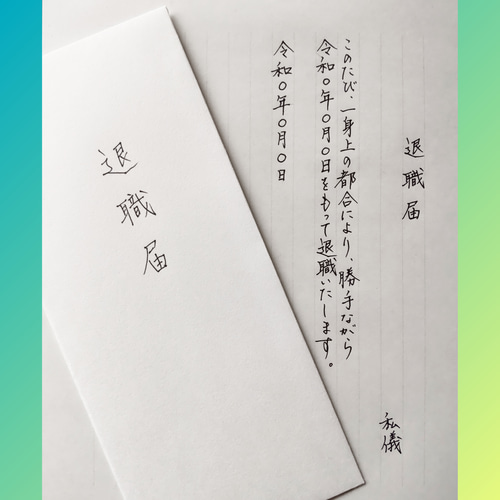 退職届
私儀
このたび、一身上の都合により、勝手ながら
令和〇年〇月〇日をもって退職いたします。
令和〇年〇月〇日
退職届